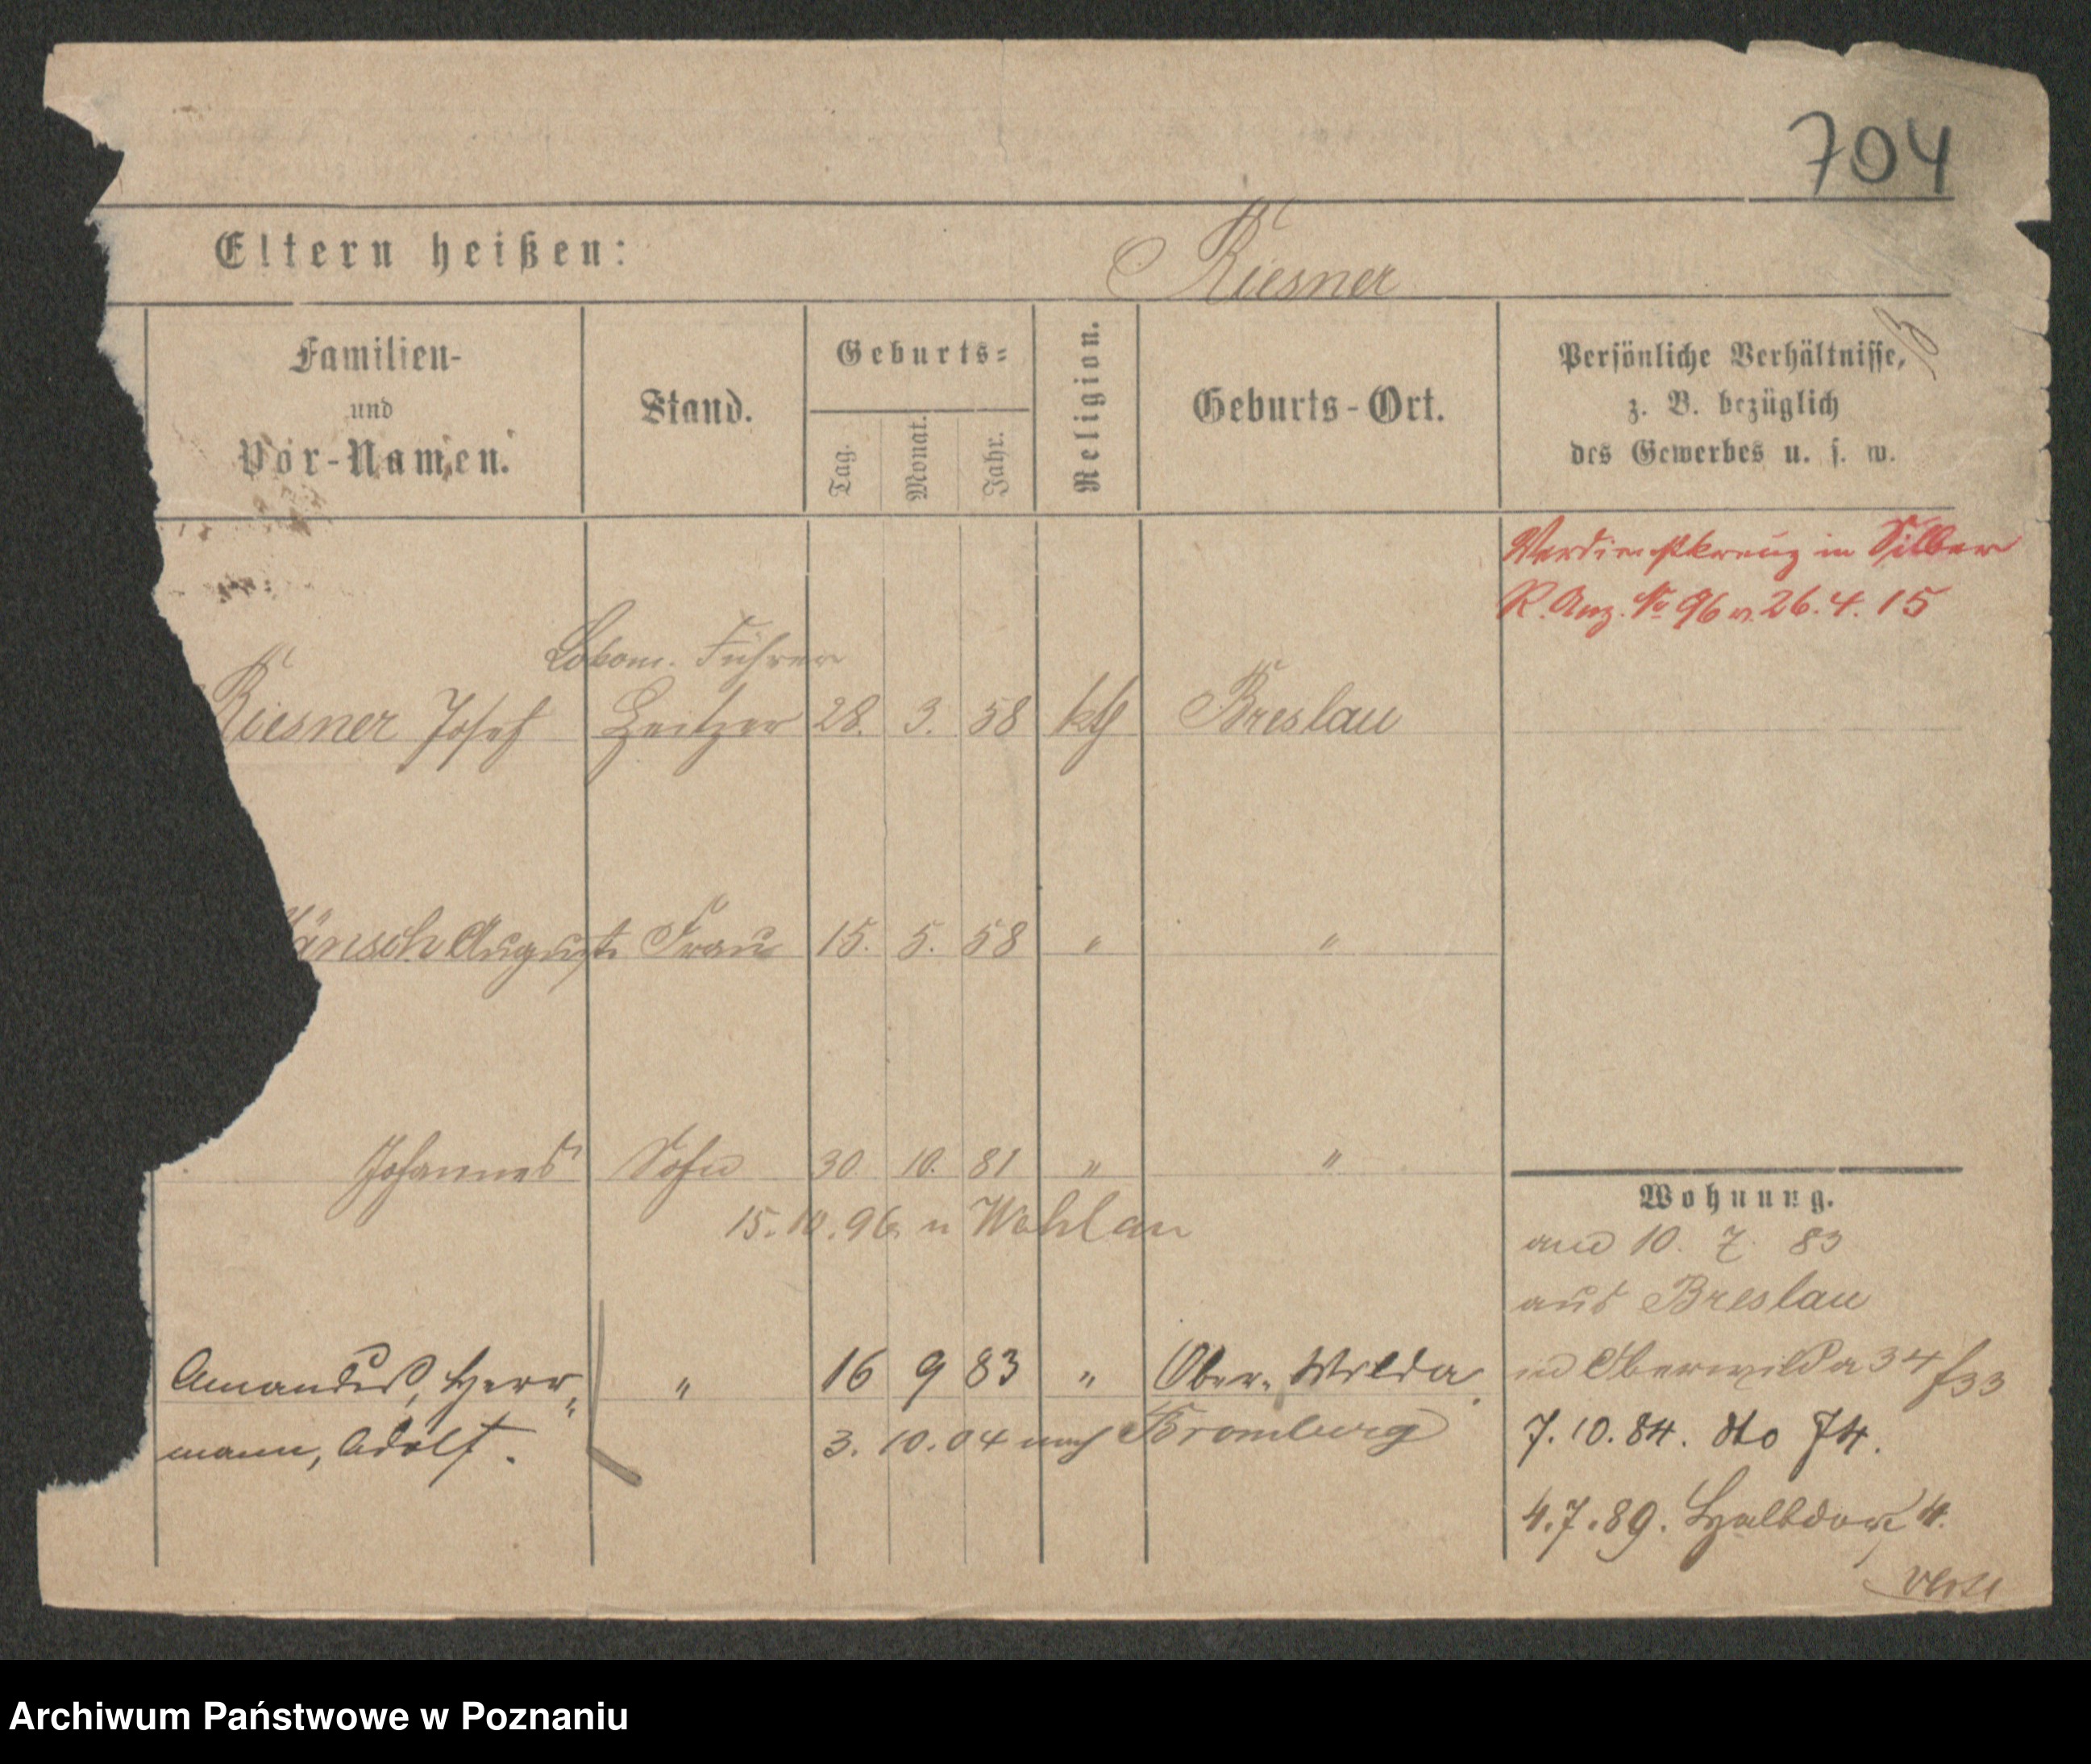 704
Eltern heißen:
Riesner
Familien-
und
Vor-Namen.
Stand.
Geburts-
Tag.
Monat.
Jahr.
Religion.
Geburts-Ort.
Persönliche Verhältnisse,
z. B. bezüglich
des Gewerbes u. s. w.
Verdienstkreuz in Silber
R. Anz. No 96 v. 26. 4. 15
Lokom. Führer
Riesner Josef Heitzer 28. 3. 58 kth Breslau
änsch Auguste Frau 15. 5. 58 " "
Johannes Sohn 30 10. 81 " "
15. 10. 96 n Wohlau
Amandus, Herr- " 16 9 83 " Ober-Wilda
mann, Adolf. 3. 10. 04 nach Bromberg
Wohnung.
10. 7. 83
aus Breslau
in Oberwilda 34/33
7. 10. 84. dto 74.
4. 7. 89. Halbdorf 4.
Archiwum Państwowe w Poznaniu